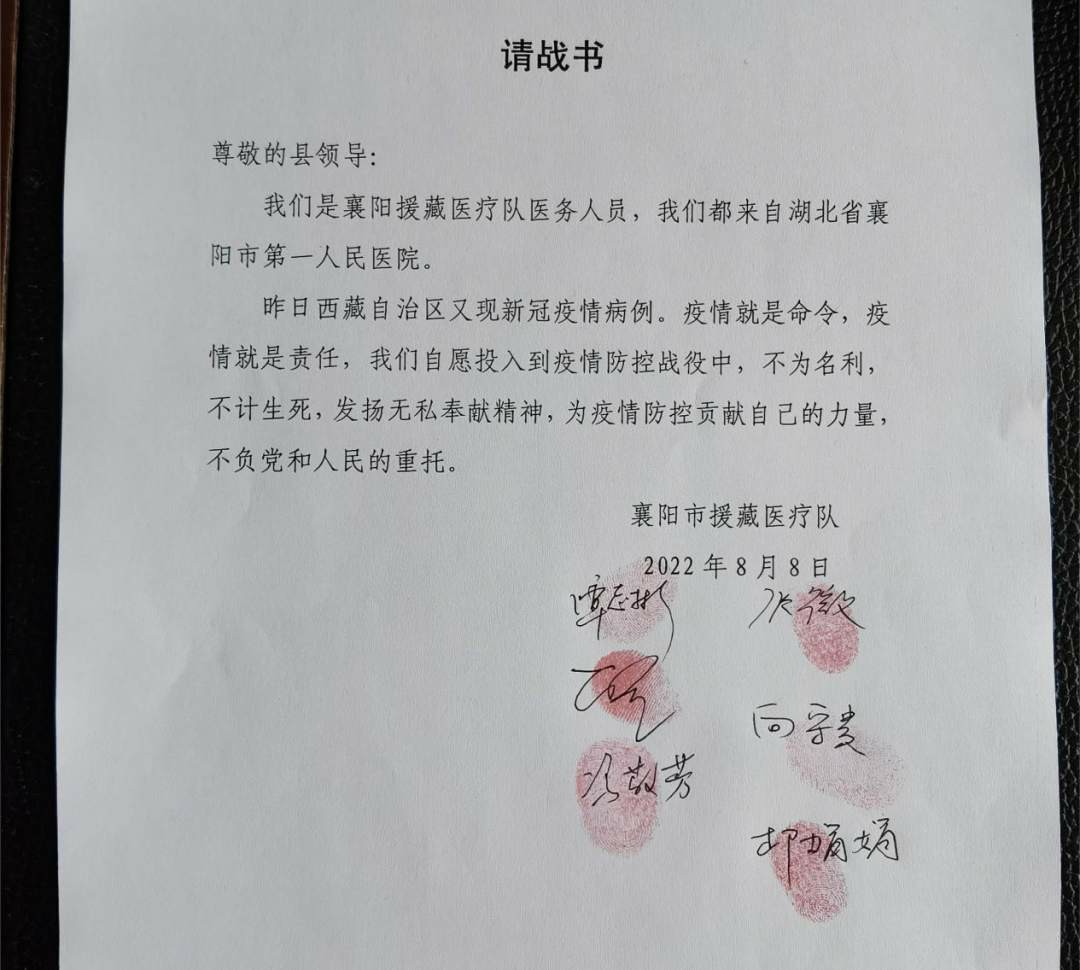 请战书
尊敬的县领导：
我们是襄阳援藏医疗队医务人员，我们都来自湖北省襄
阳市第一人民医院。
昨日西藏自治区又现新冠疫情病例。疫情就是命令，疫
情就是责任，我们自愿投入到疫情防控战役中，不为名利，
不计生死，发扬无私奉献精神，为疫情防控贡献自己的力量，
不负党和人民的重托。
襄阳市援藏医疗队
2022年8月8日
覃志彬 张微
向守贵
冯敬芳